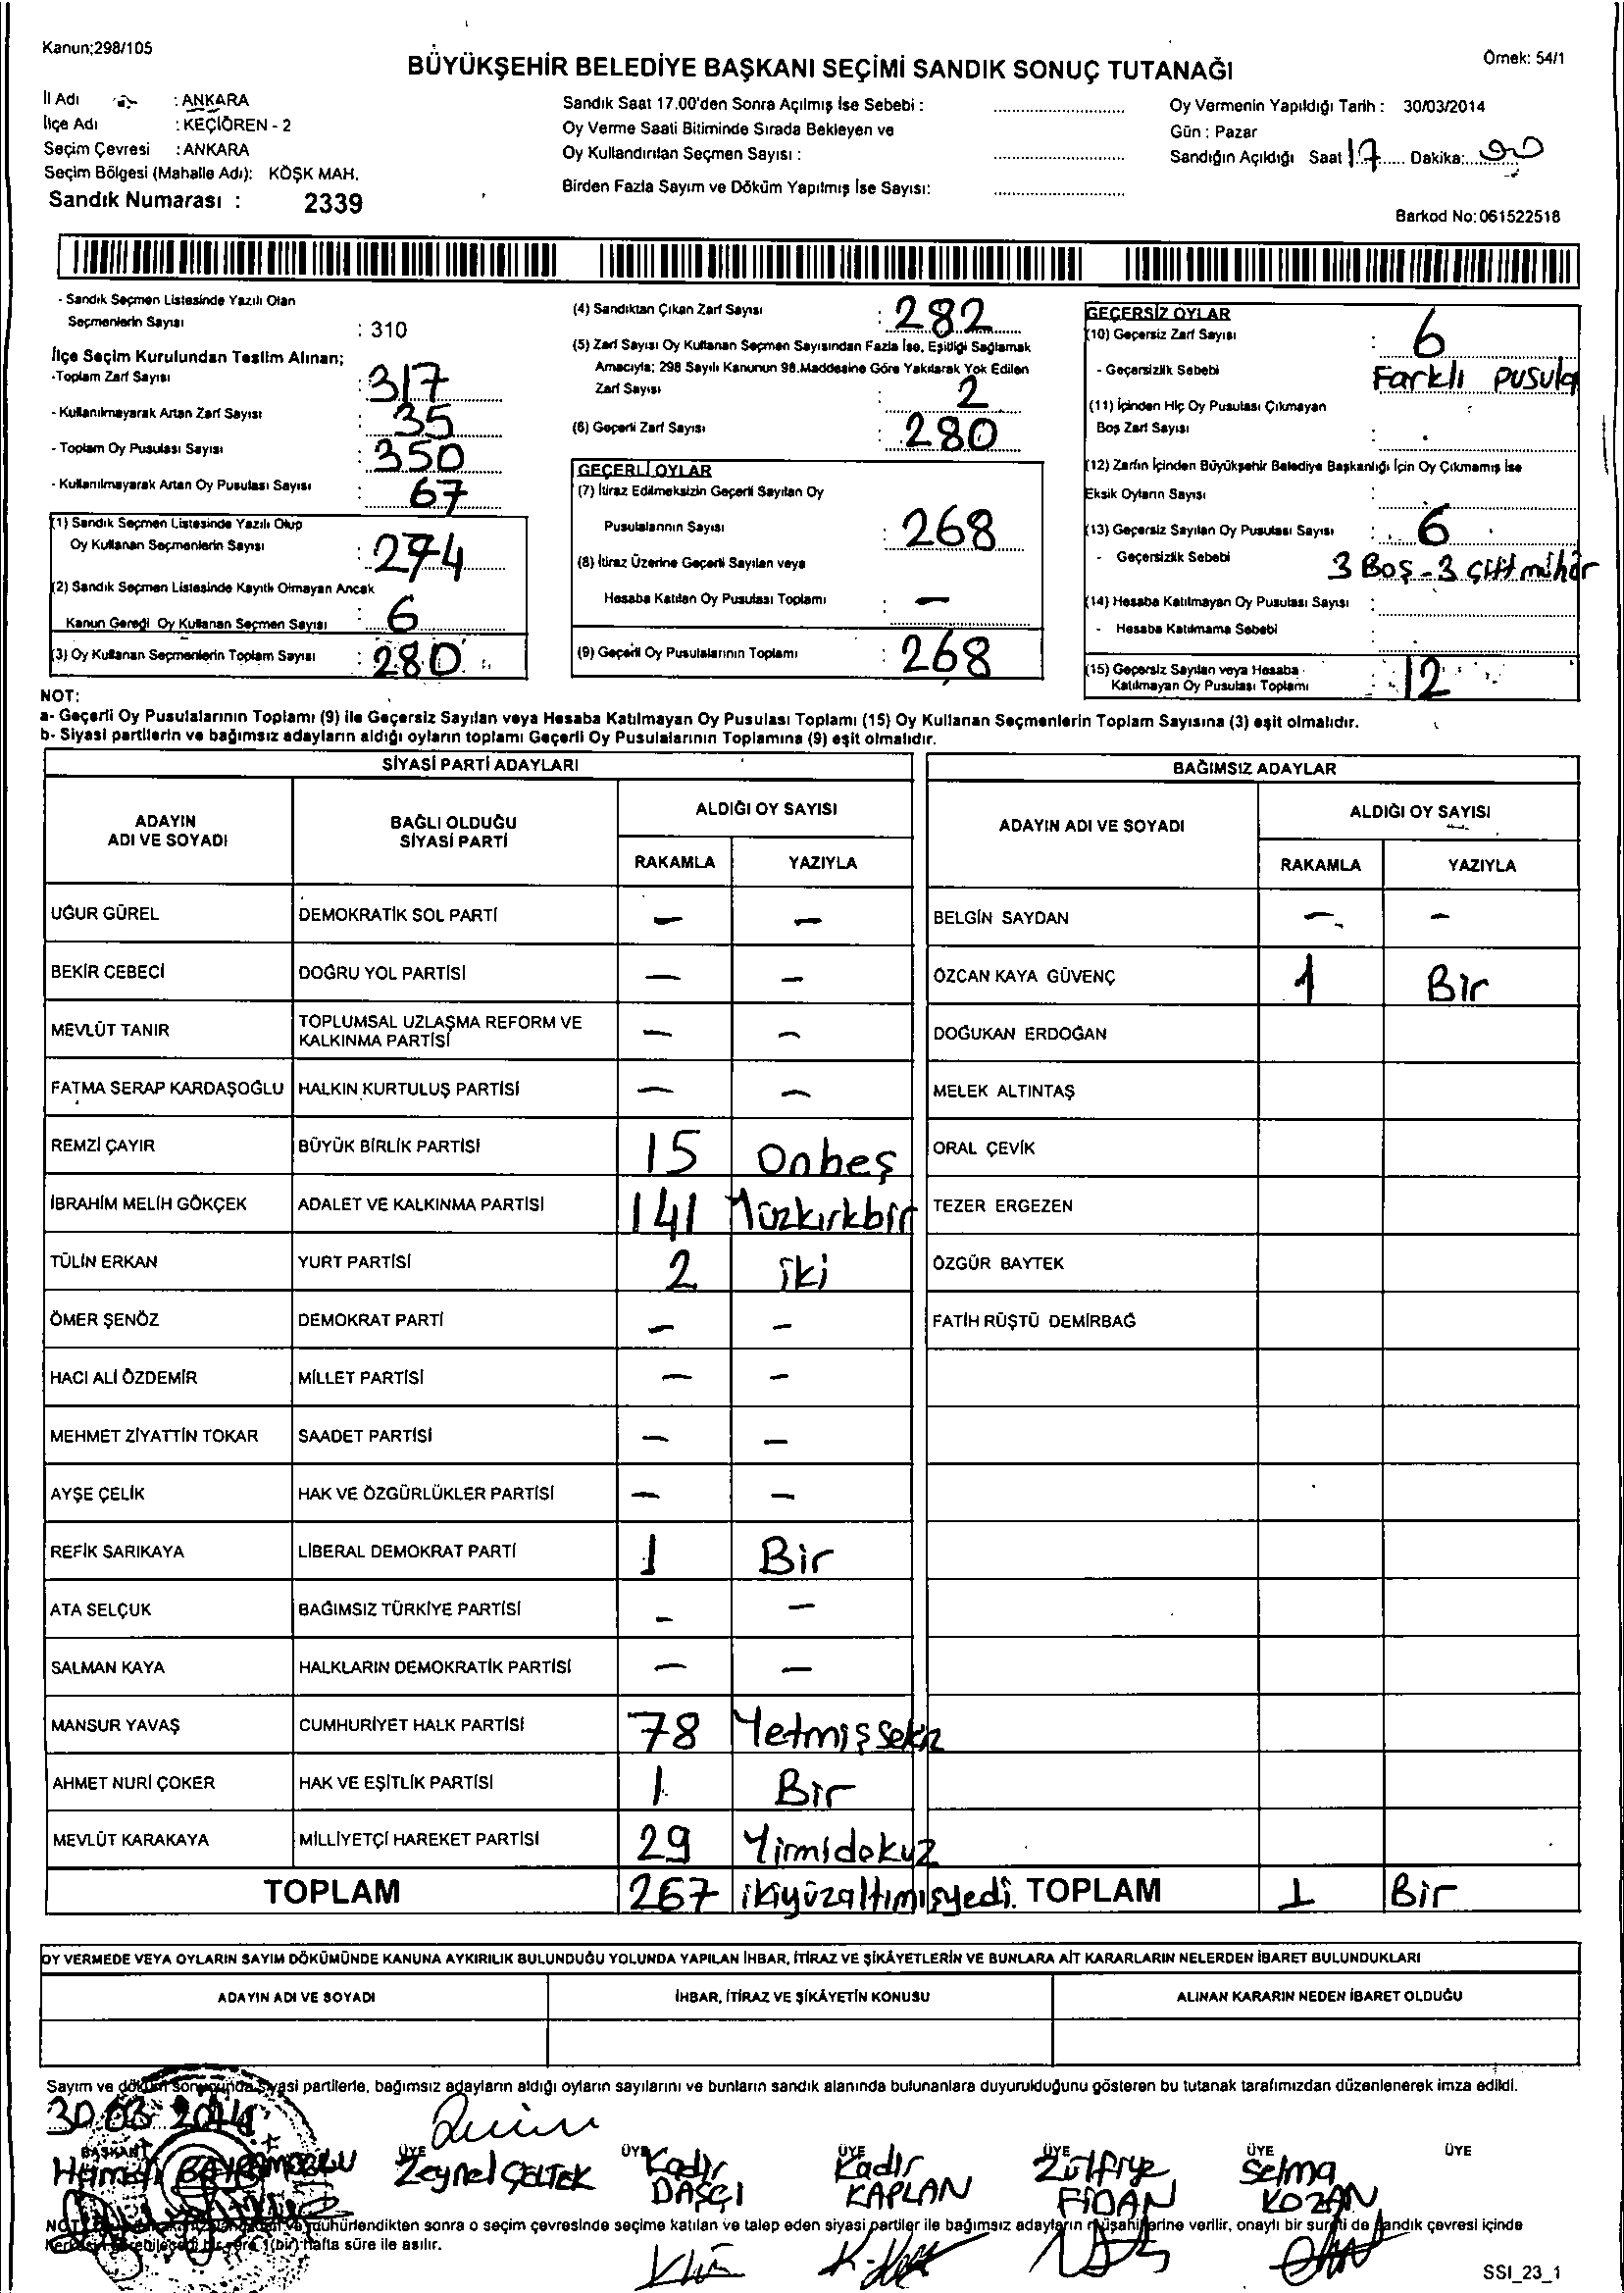 Kanun;298/105
Örnek: 54/1
BÜYÜKŞEHİR BELEDİYE BAŞKANI SEÇİMİ SANDIK SONUÇ TUTANAĞI
İl Adı : ANKARA
İlçe Adı : KEÇİÖREN - 2
Seçim Çevresi : ANKARA
Seçim Bölgesi (Mahalle Adı): KÖŞK MAH.
Sandık Numarası : 2339
Sandık Saat 17.00'den Sonra Açılmış İse Sebebi :
Oy Verme Saati Bitiminde Sırada Bekleyen ve
Oy Kullandırılan Seçmen Sayısı :
Birden Fazla Sayım ve Döküm Yapılmış İse Sayısı:
Oy Vermenin Yapıldığı Tarih : 30/03/2014
Gün : Pazar
Sandığın Açıldığı Saat 17 Dakika:
Barkod No: 061522518
- Sandık Seçmen Listesinde Yazılı Olan
Seçmenlerin Sayısı : 310
İlçe Seçim Kurulundan Teslim Alınan;
-Toplam Zarf Sayısı : 317
- Kullanılmayarak Artan Zarf Sayısı : 35
- Toplam Oy Pusulası Sayısı : 350
- Kullanılmayarak Artan Oy Pusulası Sayısı : 67
(1) Sandık Seçmen Listesinde Yazılı Olup
Oy Kullanan Seçmenlerin Sayısı : 274
(2) Sandık Seçmen Listesinde Kayıtlı Olmayan Ancak
Kanun Gereği Oy Kullanan Seçmen Sayısı : 6
(3) Oy Kullanan Seçmenlerin Toplam Sayısı : 280
(4) Sandıktan Çıkan Zarf Sayısı : 282
(5) Zarf Sayısı Oy Kullanan Seçmen Sayısından Fazla İse, Eşitliği Sağlamak
Amacıyla; 298 Sayılı Kanunun 98.Maddesine Göre Yakılarak Yok Edilen
Zarf Sayısı : 2
(6) Geçerli Zarf Sayısı : 280
GEÇERLİ OYLAR
(7) İtiraz Edilmeksizin Geçerli Sayılan Oy
Pusulalarının Sayısı : 268
(8) İtiraz Üzerine Geçerli Sayılan veya
Hesaba Katılan Oy Pusulası Toplamı : —
(9) Geçerli Oy Pusulalarının Toplamı : 268
GEÇERSİZ OYLAR
(10) Geçersiz Zarf Sayısı : 6
- Geçersizlik Sebebi Farklı pusula
(11) İçinden Hiç Oy Pusulası Çıkmayan
Boş Zarf Sayısı :
(12) Zarfın İçinden Büyükşehir Belediye Başkanlığı İçin Oy Çıkmamış İse
Eksik Oyların Sayısı :
(13) Geçersiz Sayılan Oy Pusulası Sayısı : 6
- Geçersizlik Sebebi : 3 Boş - 3 Çift mühür
(14) Hesaba Katılmayan Oy Pusulası Sayısı :
- Hesaba Katılmama Sebebi :
(15) Geçersiz Sayılan veya Hesaba
Katılmayan Oy Pusulası Toplamı : 12
NOT:
a- Geçerli Oy Pusulalarının Toplamı (9) ile Geçersiz Sayılan veya Hesaba Katılmayan Oy Pusulası Toplamı (15) Oy Kullanan Seçmenlerin Toplam Sayısına (3) eşit olmalıdır.
b- Siyasi partilerin ve bağımsız adayların aldığı oyların toplamı Geçerli Oy Pusulalarının Toplamına (9) eşit olmalıdır.
SİYASİ PARTİ ADAYLARI
ADAYIN ADI VE SOYADI
BAĞLI OLDUĞU SİYASİ PARTİ
ALDIĞI OY SAYISI
RAKAMLA YAZIYLA
UĞUR GÜREL DEMOKRATİK SOL PARTİ — —
BEKİR CEBECİ DOĞRU YOL PARTİSİ — —
MEVLÜT TANIR TOPLUMSAL UZLAŞMA REFORM VE KALKINMA PARTİSİ — —
FATMA SERAP KARDAŞOĞLU HALKIN KURTULUŞ PARTİSİ — —
REMZİ ÇAYIR BÜYÜK BİRLİK PARTİSİ 15 Onbeş
İBRAHİM MELİH GÖKÇEK ADALET VE KALKINMA PARTİSİ 141 Yüzkırkbir
TÜLİN ERKAN YURT PARTİSİ 2 iki
ÖMER ŞENÖZ DEMOKRAT PARTİ — —
HACI ALİ ÖZDEMİR MİLLET PARTİSİ — —
MEHMET ZİYATTİN TOKAR SAADET PARTİSİ — —
AYŞE ÇELİK HAK VE ÖZGÜRLÜKLER PARTİSİ — —
REFİK SARIKAYA LİBERAL DEMOKRAT PARTİ 1 Bir
ATA SELÇUK BAĞIMSIZ TÜRKİYE PARTİSİ — —
SALMAN KAYA HALKLARIN DEMOKRATİK PARTİSİ — —
MANSUR YAVAŞ CUMHURİYET HALK PARTİSİ 78 Yetmişsekiz
AHMET NURİ ÇOKER HAK VE EŞİTLİK PARTİSİ 1 Bir
MEVLÜT KARAKAYA MİLLİYETÇİ HAREKET PARTİSİ 29 Yirmidokuz
TOPLAM 267 ikiyüzaltmışyedi.
BAĞIMSIZ ADAYLAR
ADAYIN ADI VE SOYADI
ALDIĞI OY SAYISI
RAKAMLA YAZIYLA
BELGİN SAYDAN — —
ÖZCAN KAYA GÜVENÇ 1 Bir
DOĞUKAN ERDOĞAN
MELEK ALTINTAŞ
ORAL ÇEVİK
TEZER ERGEZEN
ÖZGÜR BAYTEK
FATİH RÜŞTÜ DEMİRBAĞ
TOPLAM 1 Bir
OY VERMEDE VEYA OYLARIN SAYIM DÖKÜMÜNDE KANUNA AYKIRILIK BULUNDUĞU YOLUNDA YAPILAN İHBAR, İTİRAZ VE ŞİKÂYETLERİN VE BUNLARA AİT KARARLARIN NELERDEN İBARET BULUNDUKLARI
ADAYIN ADI VE SOYADI
İHBAR, İTİRAZ VE ŞİKÂYETİN KONUSU
ALINAN KARARIN NEDEN İBARET OLDUĞU
Sayım ve döküm sonucunda siyasi partilerle, bağımsız adayların aldığı oyların sayılarını ve bunların sandık alanında bulunanlara duyurulduğunu gösteren bu tutanak tarafımızdan düzenlenerek imza edildi.
30.03.2014
BAŞKAN ÜYE ÜYE ÜYE ÜYE ÜYE ÜYE
Zeynel Kadir DAŞÇI Kadir KAPLAN Zülfiye FİDAN Selma KOZAN
mühürlendikten sonra o seçim çevresinde seçime katılan ve talep eden siyasi partiler ile bağımsız adayların müşahitlerine verilir, onaylı bir sureti de sandık çevresi içinde
1(bir) hafta süre ile asılır.
SSI_23_1